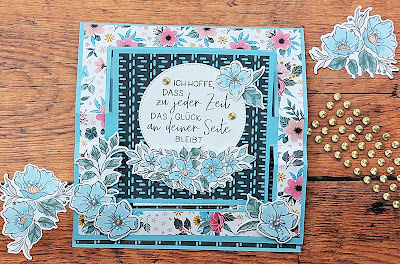 ICH HOFFE,
DASS
zu jeder Zeit
DAS GLÜCK
an deiner Seite
BLEIBT